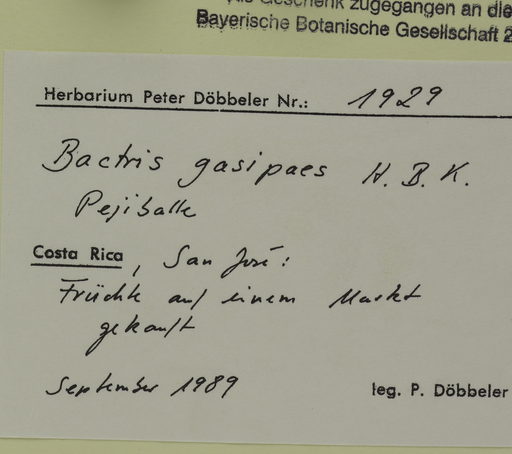 Als Geschenk zugegangen an die
Bayerische Botanische Gesellschaft 2
Herbarium Peter Döbbeler Nr.: 1929
Bactris gasipaes H. B. K.
Pejiballe
Costa Rica, San José:
Früchte auf einem Markt
gekauft
September 1989
leg. P. Döbbeler